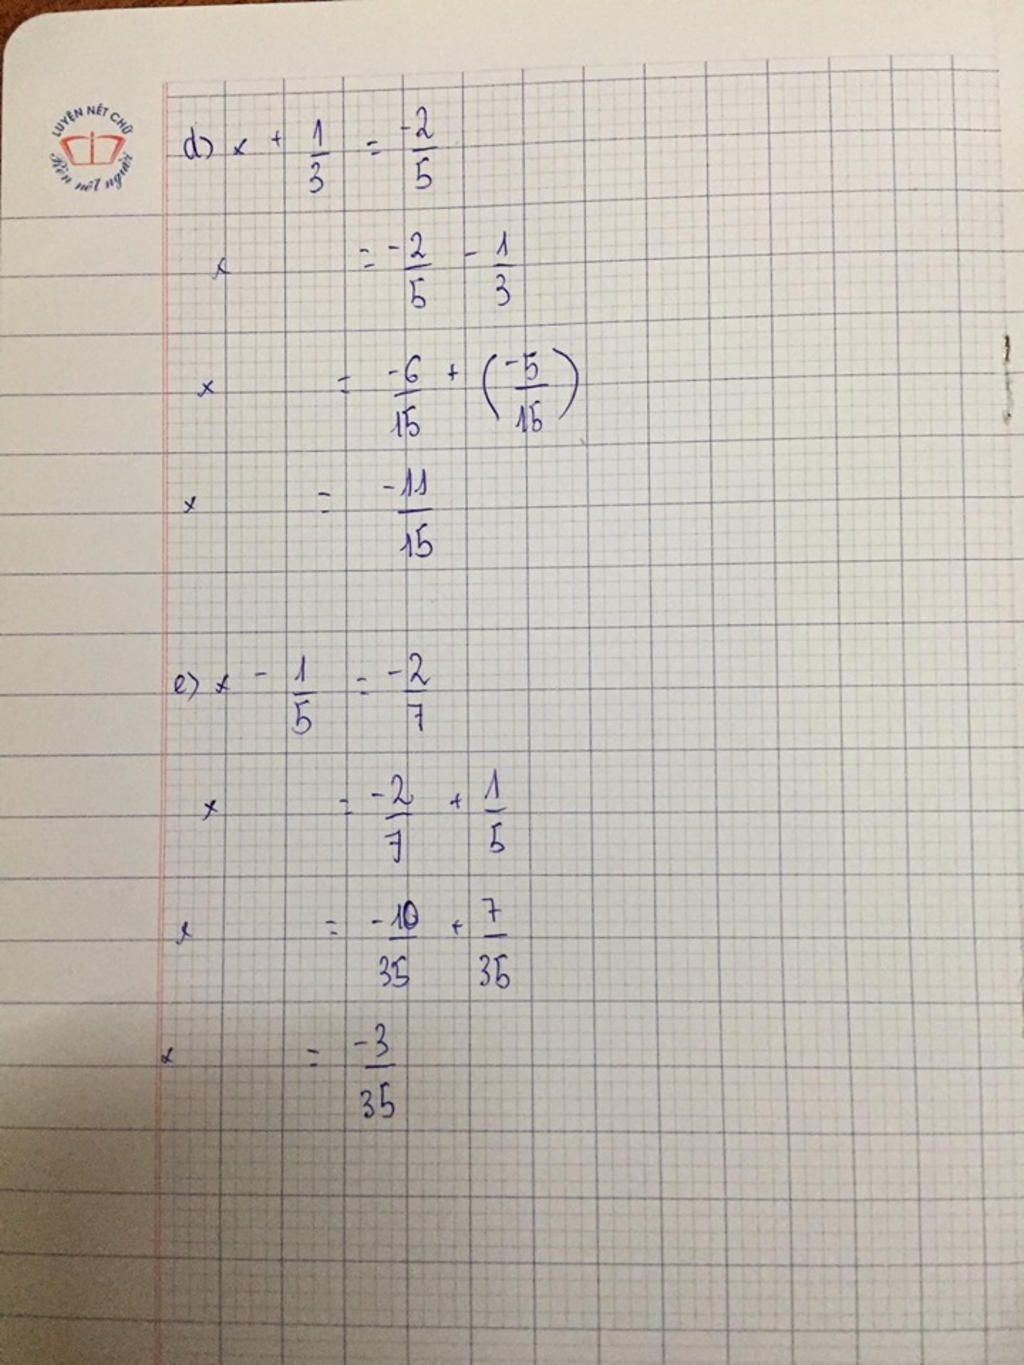 LUYỆN NÉT CHỮ
Rèn nết người
d) x + 1/3 = -2/5
x = -2/5 - 1/3
x = -6/15 + (-5/15)
x = -11/15
e) x - 1/5 = -2/7
x = -2/7 + 1/5
x = -10/35 + 7/35
x = -3/35